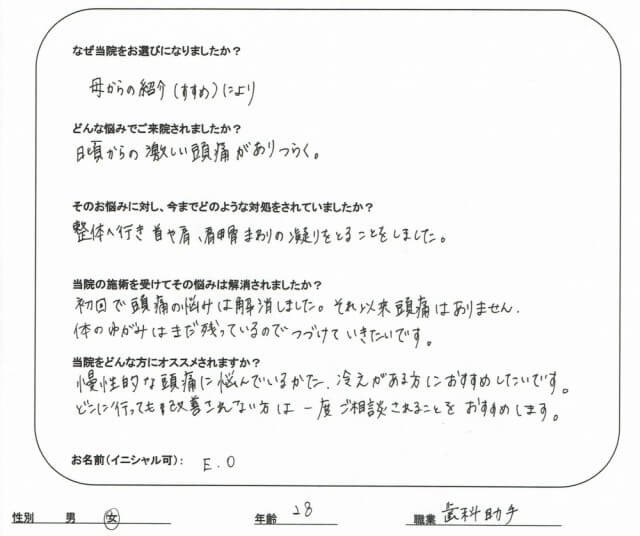 なぜ当院をお選びになりましたか?
母からの紹介(すすめ)により
どんな悩みでご来院されましたか?
日頃からの激しい頭痛がありつらく。
そのお悩みに対し、今までどのような対処をされていましたか?
整体へ行き首や肩、肩甲骨まわりの凝りをとることをしました。
当院の施術を受けてその悩みは解消されましたか?
初回で頭痛の悩みは解消しました。それ以来頭痛はありません.
体のゆがみはまだ残っているのでつづけていきたいです。
当院をどんな方にオススメされますか?
慢性的な頭痛に悩んでいるかた、冷えがある方におすすめしたいです。
どこに行っても改善されない方は一度ご相談されることをおすすめします。
お名前(イニシャル可): E.O
性別 男 女 年齢 28 職業 歯科助手